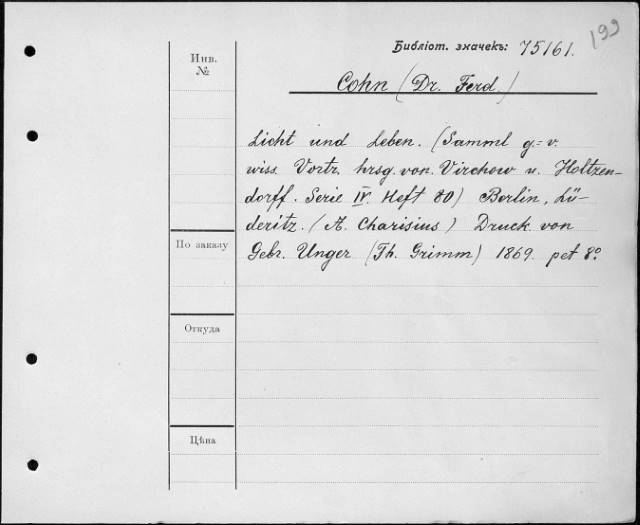 199
Библіот. значекъ: 75161.
Инв.
№
Cohn (Dr. Ferd.)
Licht und Leben. (Samml g.=v.
wiss. Vortr. hrsg. von. Virchow u. Holtzen-
dorff. Serie IV. Heft 80) Berlin, Lü-
deritz. (A. Charisius) Druck von
По заказу
Gebr. Unger (Th. Grimm) 1869. pet 8º
Откуда
Цѣна